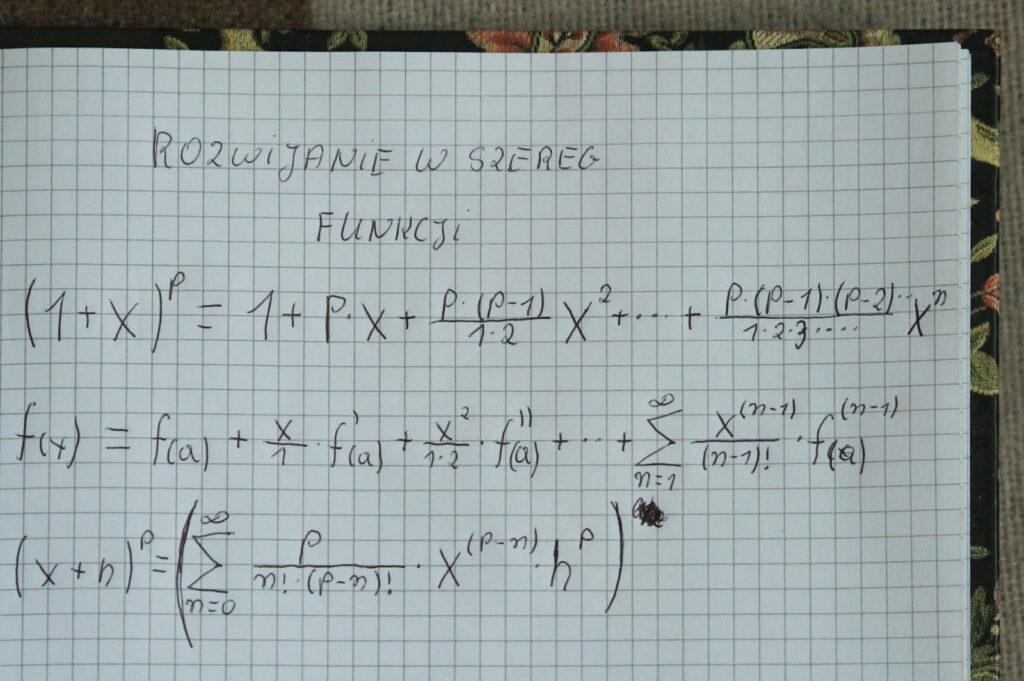 ROZWIJANIE W SZEREG
FUNKCJI
(1+x)^p = 1 + p·x + \frac{p·(p-1)}{1·2} x^2 + ··· + \frac{p·(p-1)·(p-2)··}{1·2·3····} x^n
f(x) = f(a) + \frac{x}{1} · f'(a) + \frac{x^2}{1·2} · f''(a) + ·· + \sum_{n=1}^{∞} \frac{x^{(n-1)}}{(n-1)!} · f^{(n-1)}(a)
(x+h)^p = \left( \sum_{n=0}^{∞} \frac{p}{n!·(p-n)!} · x^{(p-n)} · h^p \right)